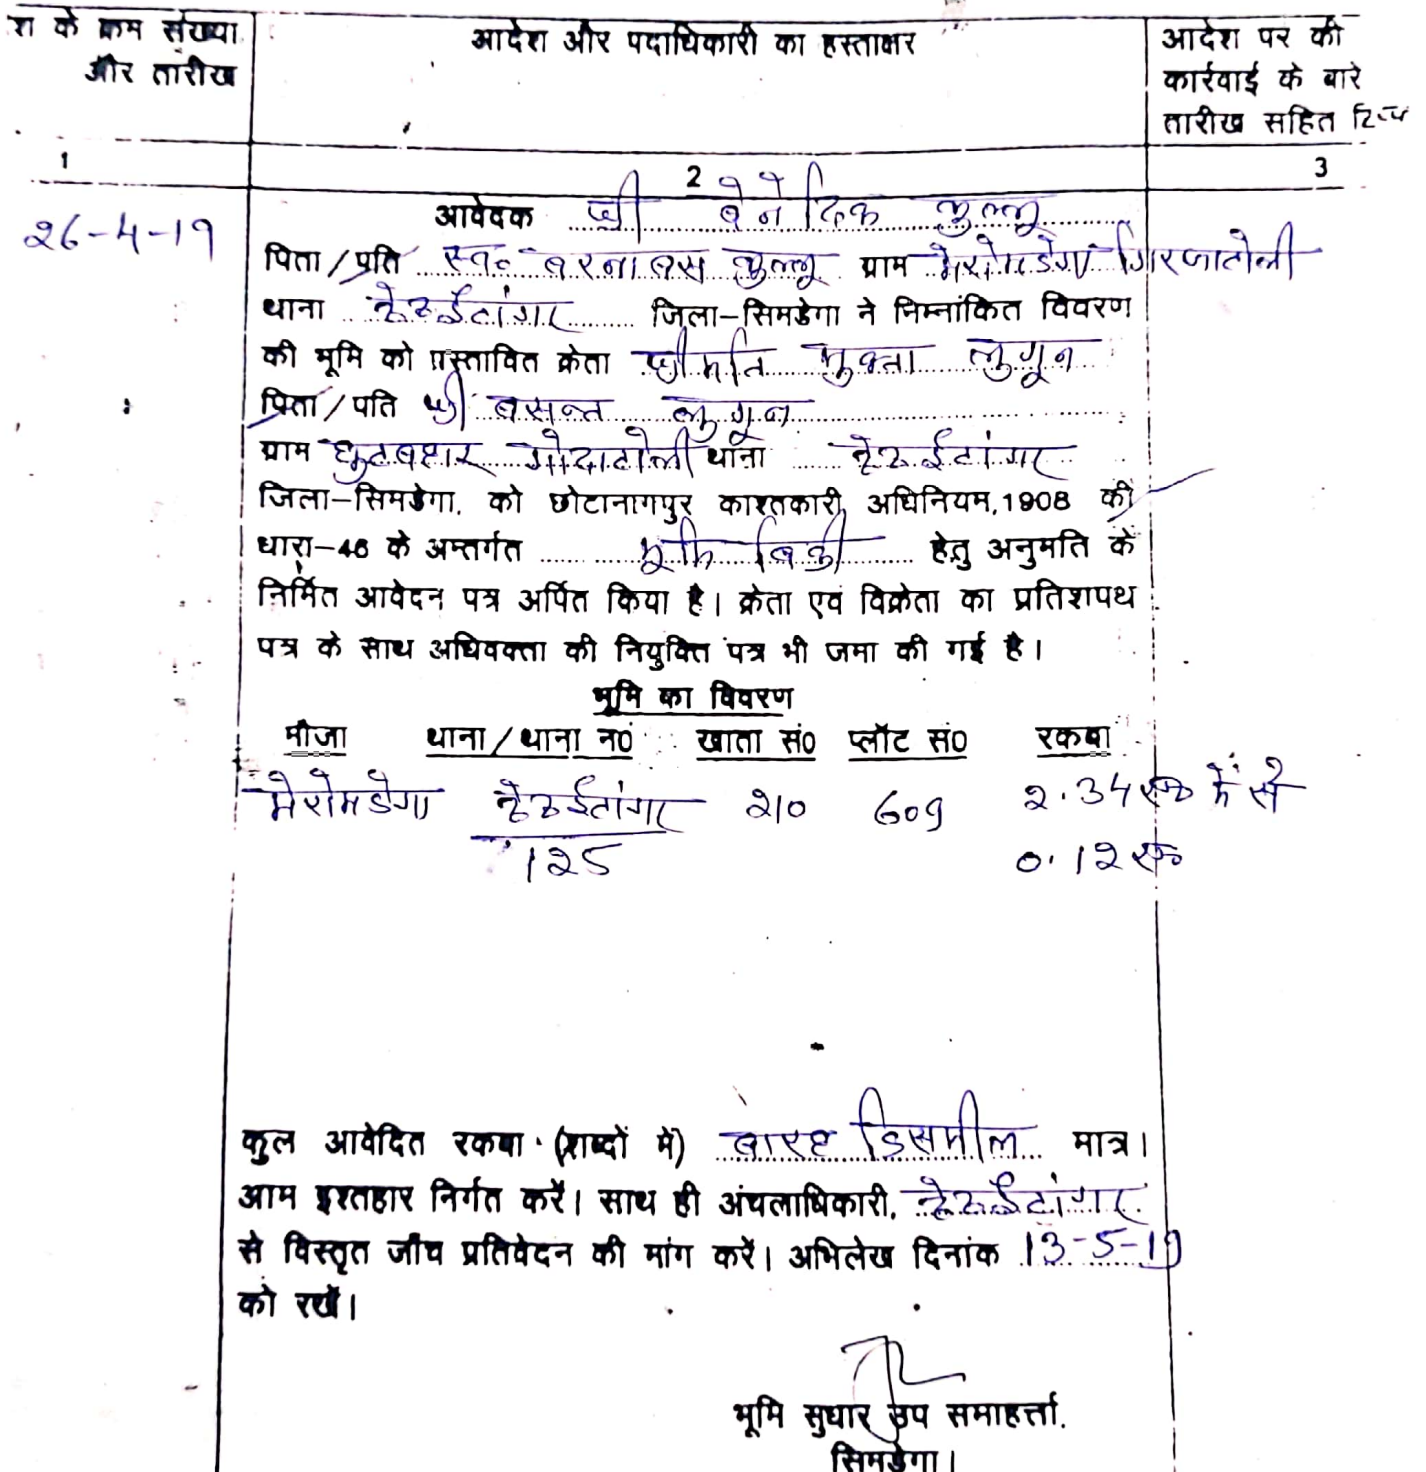 श के क्रम संख्या और तारीख
आदेश और पदाधिकारी का हस्ताक्षर
आदेश पर की कार्रवाई के बारे तारीख सहित
1 2 3
26-4-19
आवेदक श्री बेनेदिक भुल्लू
पिता/पति स्व० बरनाबस भुल्लू ग्राम मेरोमडेगा गिरजाटोली
थाना केरसई टांगर जिला-सिमडेगा ने निम्नांकित विवरण
की भूमि को प्रस्तावित क्रेता श्रीमति मुक्ता लुगून
पिता/पति श्री बसन्त लुगून
ग्राम थाना
जिला-सिमडेगा, को छोटानागपुर काश्तकारी अधिनियम,1908 की
धारा-46 के अन्तर्गत भूमि बिक्री हेतु अनुमति के
निर्मित आवेदन पत्र अर्पित किया है। क्रेता एवं विक्रेता का प्रतिशपथ
पत्र के साथ अधिवक्ता की नियुक्ति पत्र भी जमा की गई है।
भूमि का विवरण
मौजा थाना/थाना न0 खाता सं0 प्लॉट सं0 रकबा
मेरोमडेगा 210 609 2.34 ए० में से
125 0.12 ए०
कुल आवेदित रकबा (शब्दों में) बारह डिसमील मात्र।
आम इश्तहार निर्गत करें। साथ ही अंचलाधिकारी,
से विस्तृत जाँच प्रतिवेदन की मांग करें। अभिलेख दिनांक 13-5-19
को रखें।
भूमि सुधार उप समाहर्त्ता,
सिमडेगा।